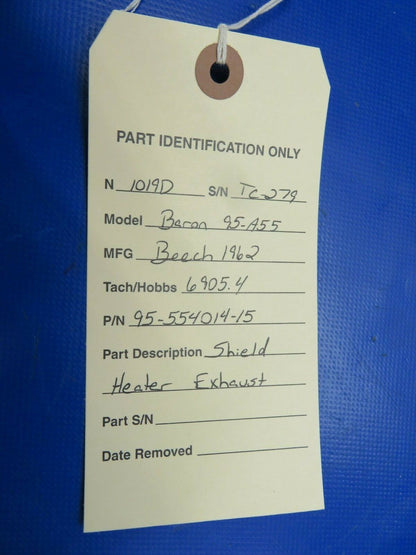 PART IDENTIFICATION ONLY
N 1019D S/N TC-279
Model Baron 95-A55
MFG Beech 1962
Tach/Hobbs 6905.4
P/N 95-554014-15
Part Description Shield
Heater Exhaust
Part S/N
Date Removed